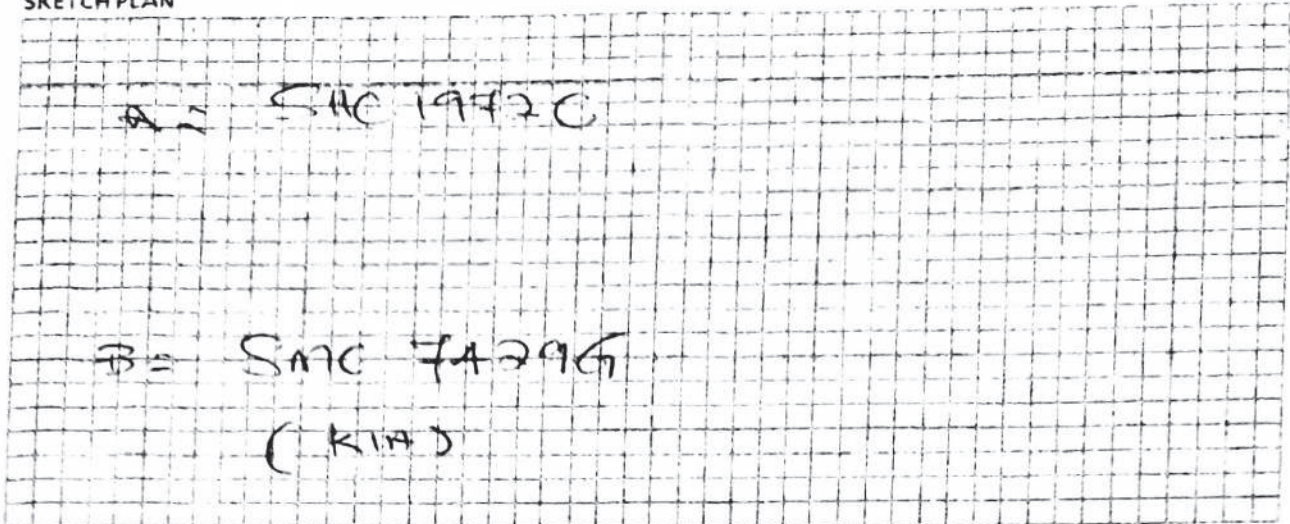 SKETCH PLAN
A = SHC 1972C
B = SMC 7429G
(KIA)